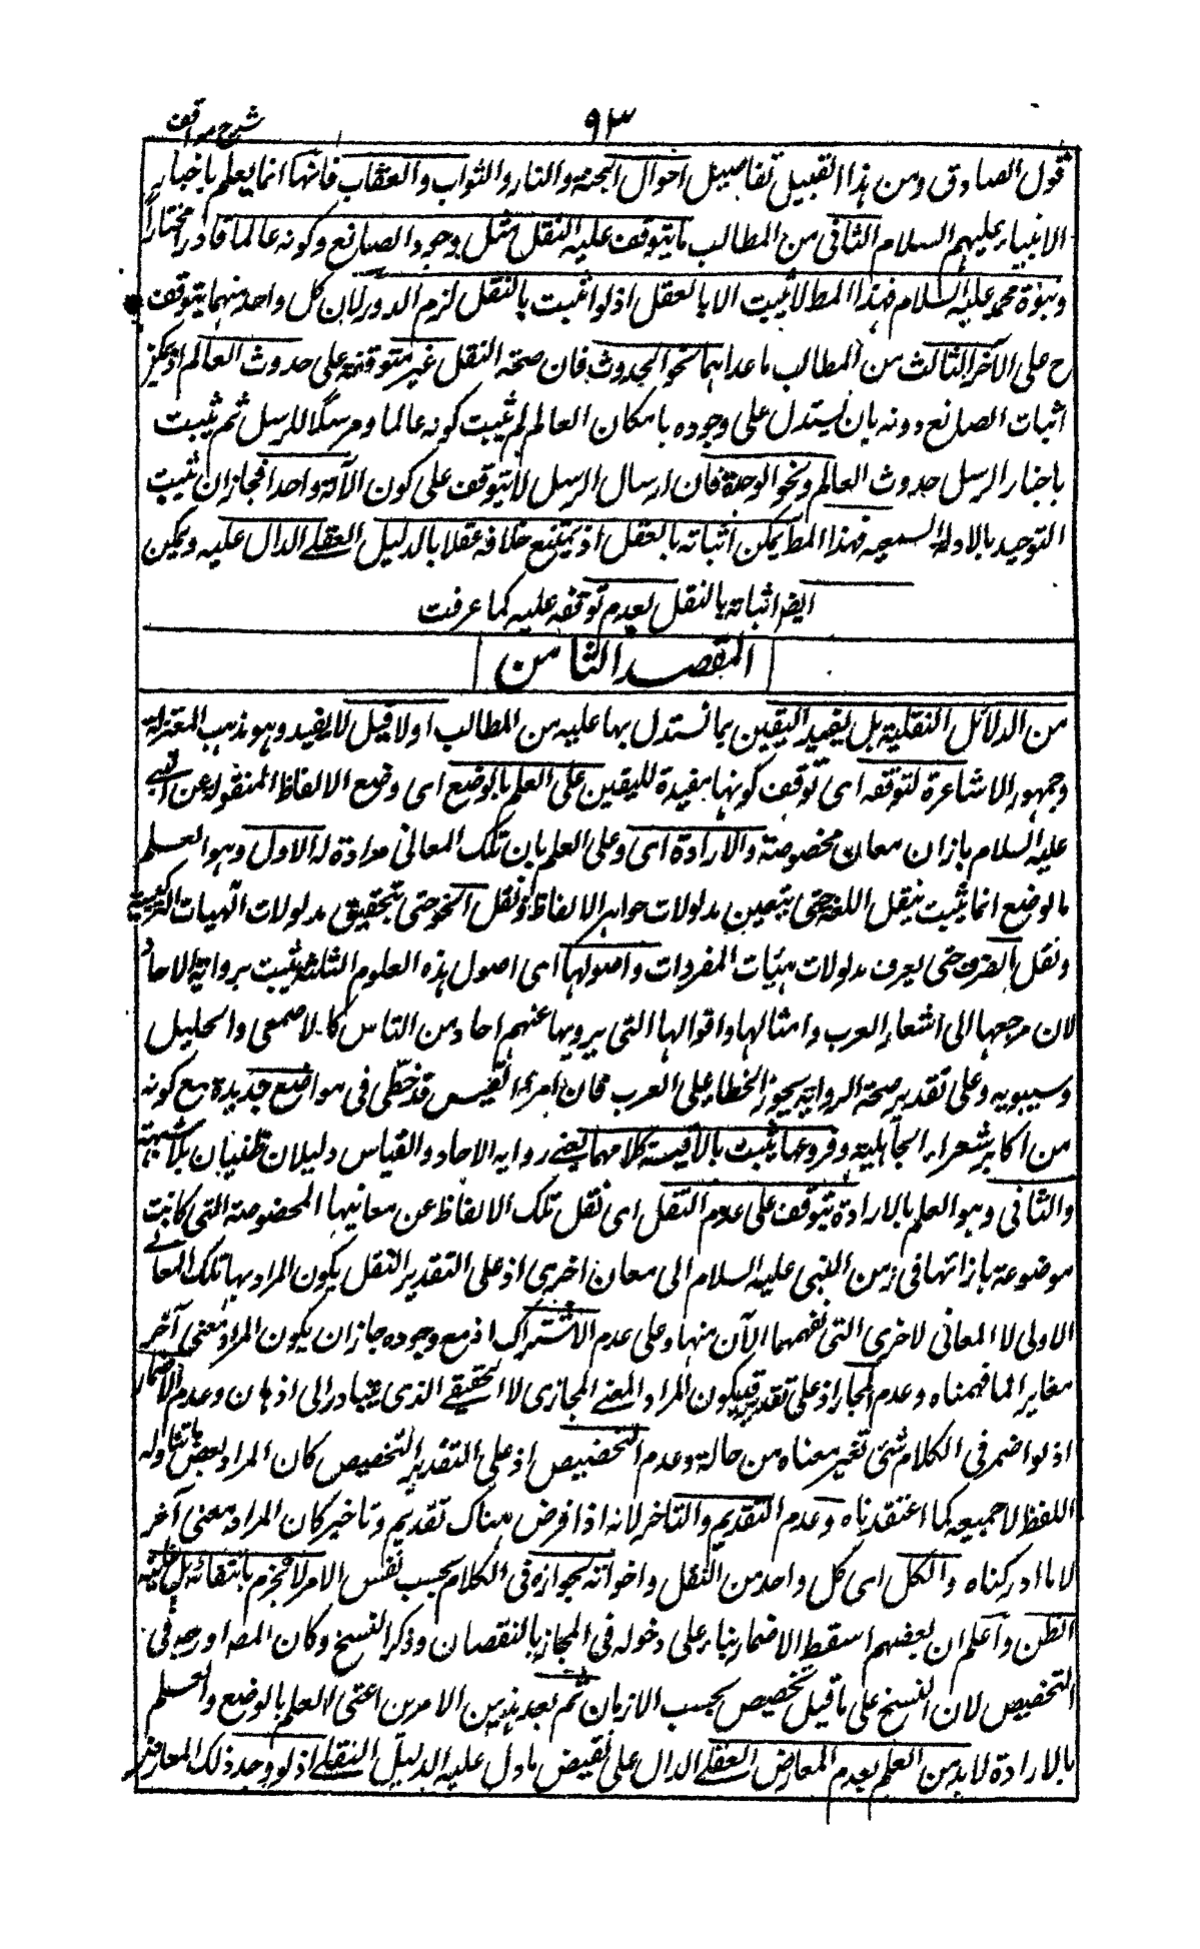 شرح مواقف
٩٣
قول الصادق ومن هذا القبيل تفاصيل احوال الجنة والنار والثواب والعقاب فانها انما يعلم باخبار
الانبياء عليهم السلام الثانى من المطالب ما يتوقف عليه النقل مثل وجود الصانع وكونه عالما قادرا مختارا
ونبوة محمد عليه السلام فهذا المط لا يثبت الا بالعقل اذ لو اثبت بالنقل لزم الدور لان كل واحد منهما يتوقف
ح على الآخر الثالث من المطالب ما عداهما نحو الحدوث فان صحة النقل غير متوقفة على حدوث العالم اذ يمكن
اثبات الصانع دونه بان يستدل على وجوده بامكان العالم ثم يثبت كونه عالما ومرسلا للرسل ثم يثبت
باخبار الرسل حدوث العالم ونحو الوحدة فان ارسال الرسل لا يتوقف على كون الآله واحدا فجاز ان يثبت
التوحيد بالادلة السمعيه فهذا المط يمكن اثباته بالعقل اذ يمتنع خلافه عقلا بالدليل العقلے الدال عليه ويمكن
ايضا اثباته بالنقل لعدم توقفه عليه كما عرفت
المقصد الثامن
من الدلائل النقلية هل يفيد اليقين بما تستدل بها عليه من المطالب اولا قيل لا يفيد وهو مذهب المعتزلة
وجمهور الاشاعرة لتوقفه اى توقف كونها مفيدة لليقين على العلم بالوضع اى وضع الالفاظ المنقوله عن النبے
عليه السلام بازان معان مخصوصة والارادة اى وعلى العلم بان تلك المعانى مرادة له الاول وهو العلم
بالوضع انما يثبت بنقل اللغة حتى يتعين مدلولات جواهر الالفاظ ونقل النحو حتى يتحقيق مدلولات الهيات التركيبية
ونقل الصرف حتى يعرف مدلولات هيئات المفردات واصولها اى اصول هذه العلوم الثلثة يثبت برواية الاحاد
لان مرجعها الى اشعار العرب وامثالها واقوالها التى يرويها عنهم احاد من الناس كالاصمعى والخليل
وسيبويه وعلى تقدير صحة الرواية يجوز الخطاء على العرب فان امرأ القيس قد خطّى فى مواضع عديدة مع كونه
من اكابر شعراء الجاهلية وفروعها يثبت بالاقيسة كلاهما يعنے رواية الاحاد والقياس دليلان ظنيان بلا شبهة
والثانى وهو العلم بالارادة يتوقف على عدم النقل اى نقل تلك الالفاظ عن معانيها المخصوصة التى كانت
موضوعة بازائها فى زمن النبى عليه السلام الى معان اخرى اذ على التقدير النقل يكون المراد بها تلك المعانے
الاولى لا المعانى لاخرى التى نفهمها الآن منها وعلى عدم الاشتراك اذ مع وجوده جاز ان يكون المراد معنى آخر
مغاير الما فهمناه وعدم المجاز اذ على تقديره يكون المراد المعنے المجازى لا الحقيقے الذى يتبادر الى اذهان وعدم الاضمار
اذ لو اضمر فى الكلام شئ تغير معناه من حالة وعدم التخصيص اذ على التقدير التخصيص كان المراد بعض ما تناوله
اللفظ لا جميعه كما اعتقدناه وعدم التقديم والتاخر لانه اذا فرض هناك تقديم وتاخير كان المراد معنى آخر
لا ما ادركناه والكل اى كل واحد من النقل واخواته لجوازه فى الكلام بحسب نفس الامر لا يجزم بانتفائه بل غايته
الظن واعلم ان بعضهم اسقط الاضمار بناء على دخوله فى المجاز بالنقصان وذكر النسخ وكان المصـ ادرجه فى
التخصيص لان النسخ على ما قيل تخصيص بحسب الازمان ثم بعد هذين الامرين اعنى العلم بالوضع والعلم
بالارادة لا بد من العلم بعدم المعارض العقلے الدال على نقيض ما دل عليه الدليل النقلے اذ لو وجد ذلك المعارض